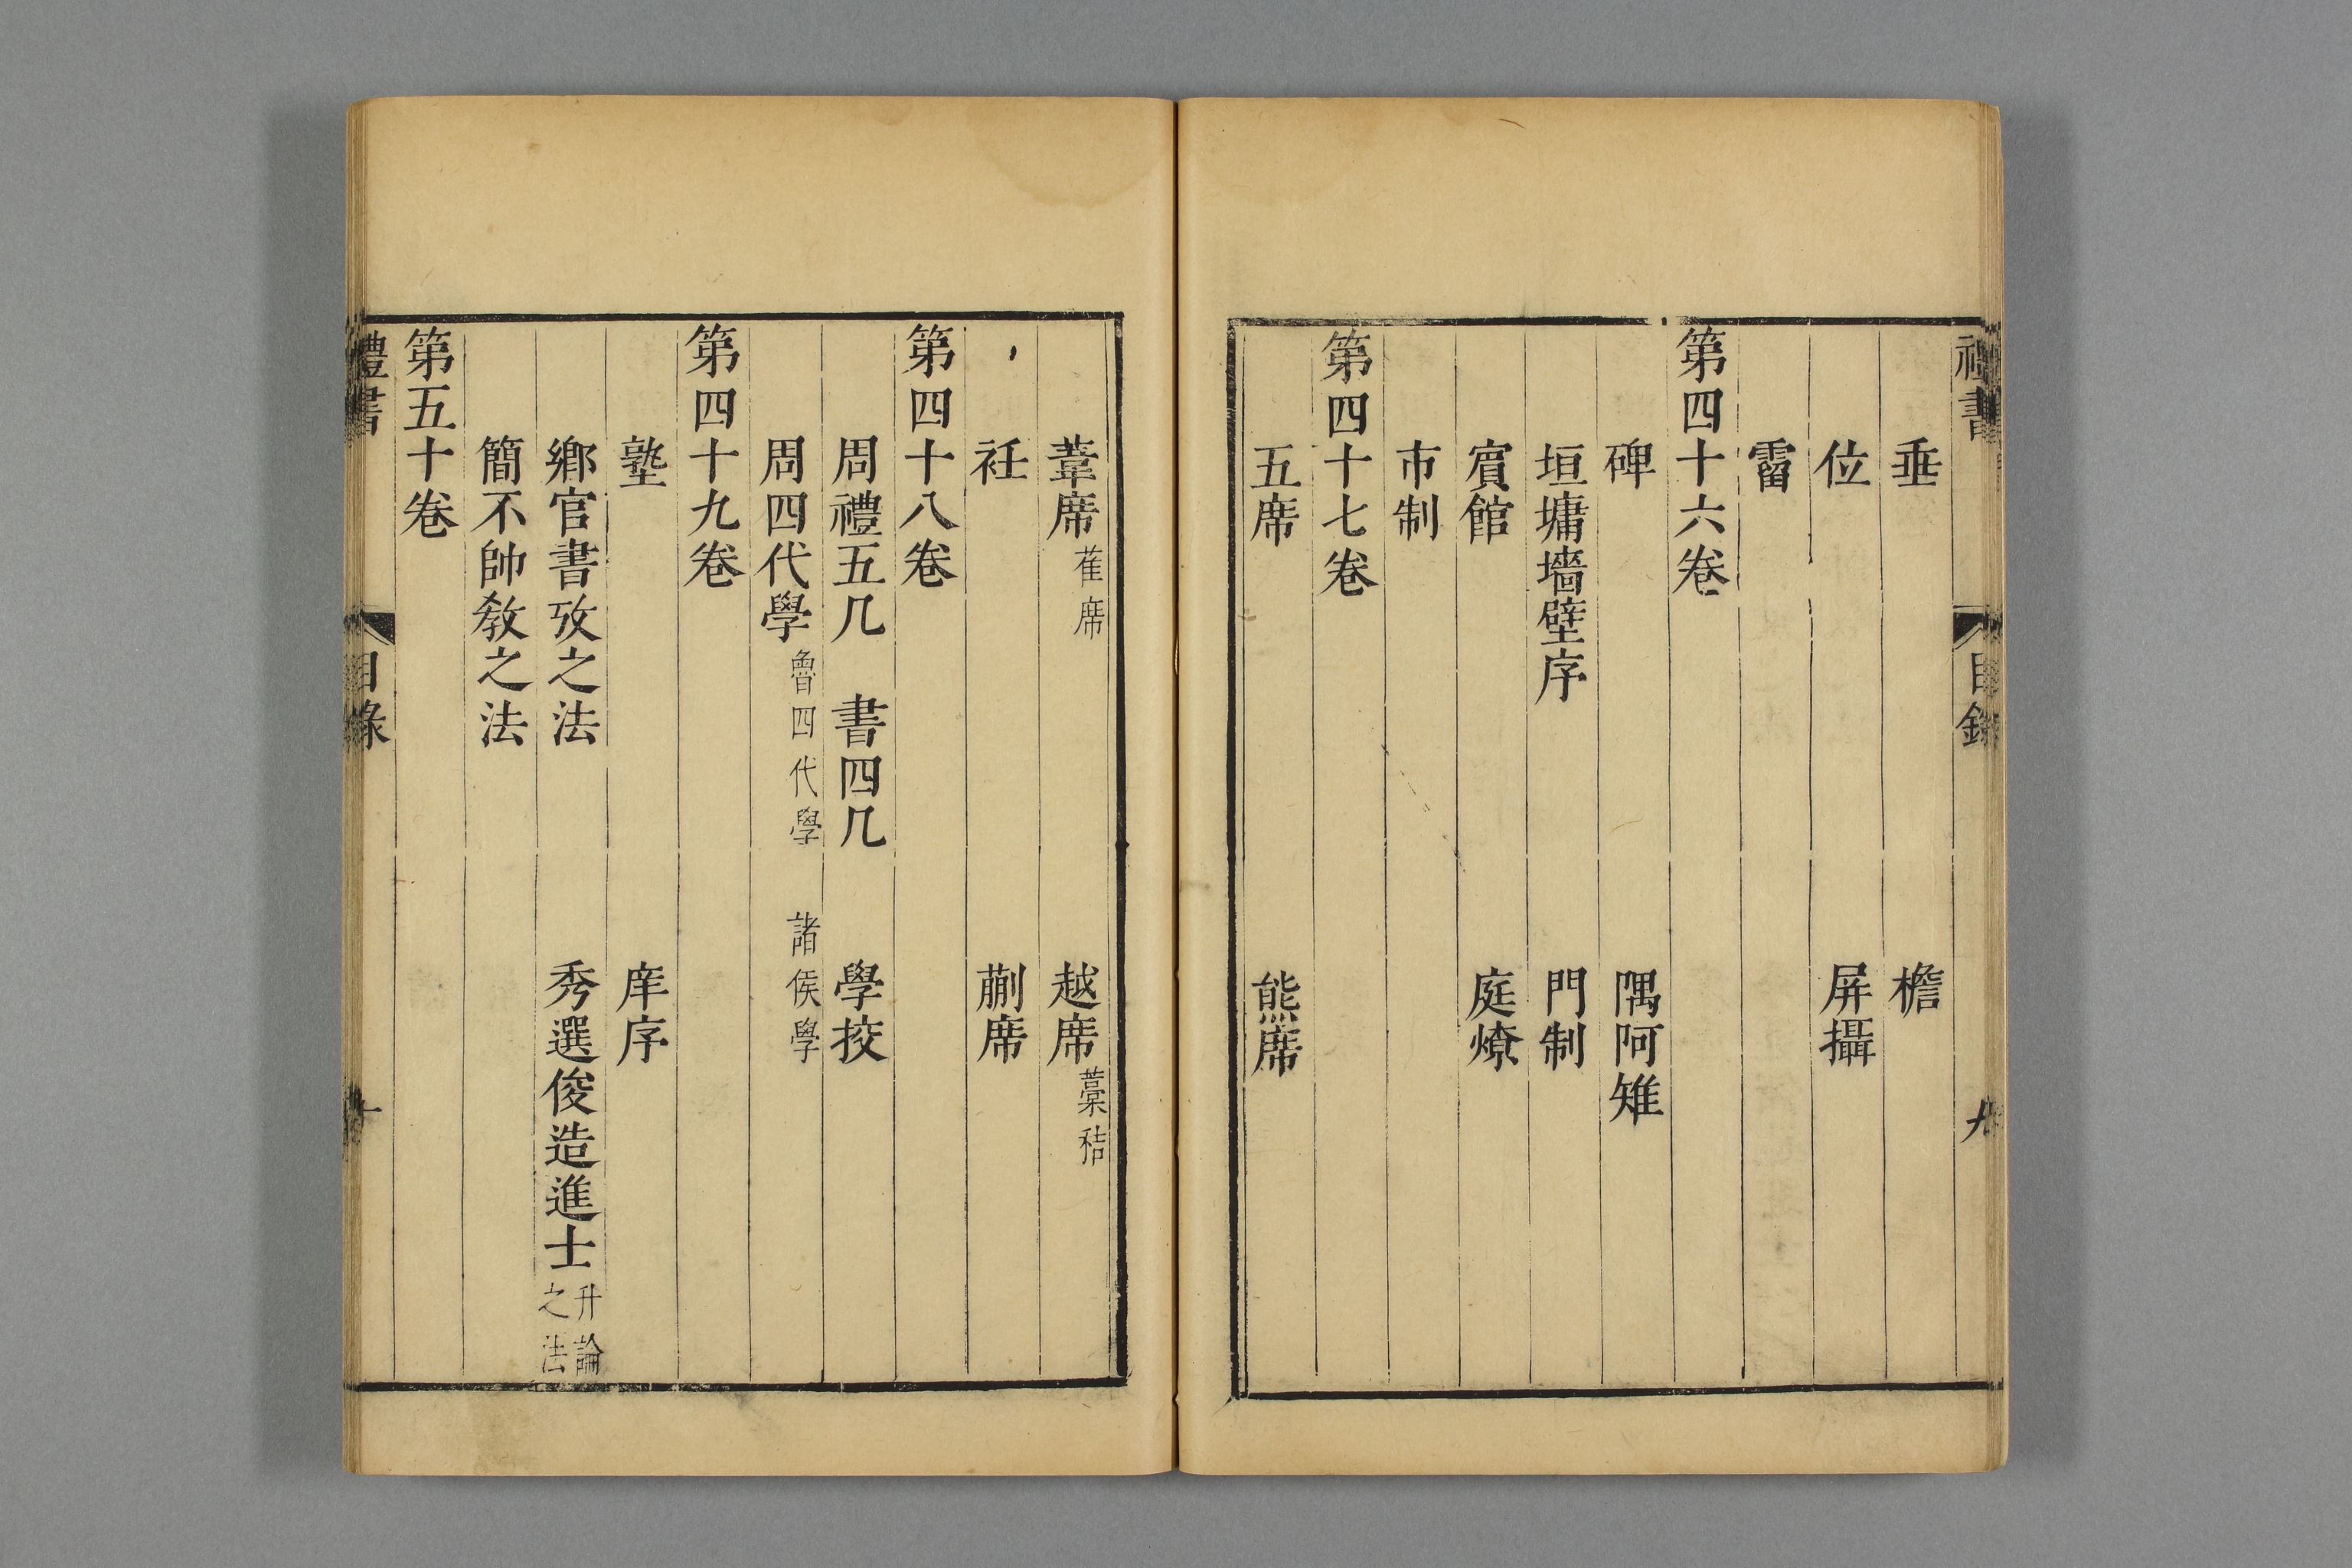 禮書　目錄　九
垂　檐
位　屏攝
霤
第四十六卷
碑　隅阿雉
垣墉墻壁序　門制
賓館　庭燎
市制
第四十七卷
五席　熊席
葦席萑席　越席藁秸
衽　蒯席
第四十八卷
周禮五几　書四几　學挍
周四代學魯四代學　諸侯學
第四十九卷
塾　庠序
鄉官書攷之法　秀選俊造進士升論之法
簡不帥教之法
第五十卷
禮書　目錄　十